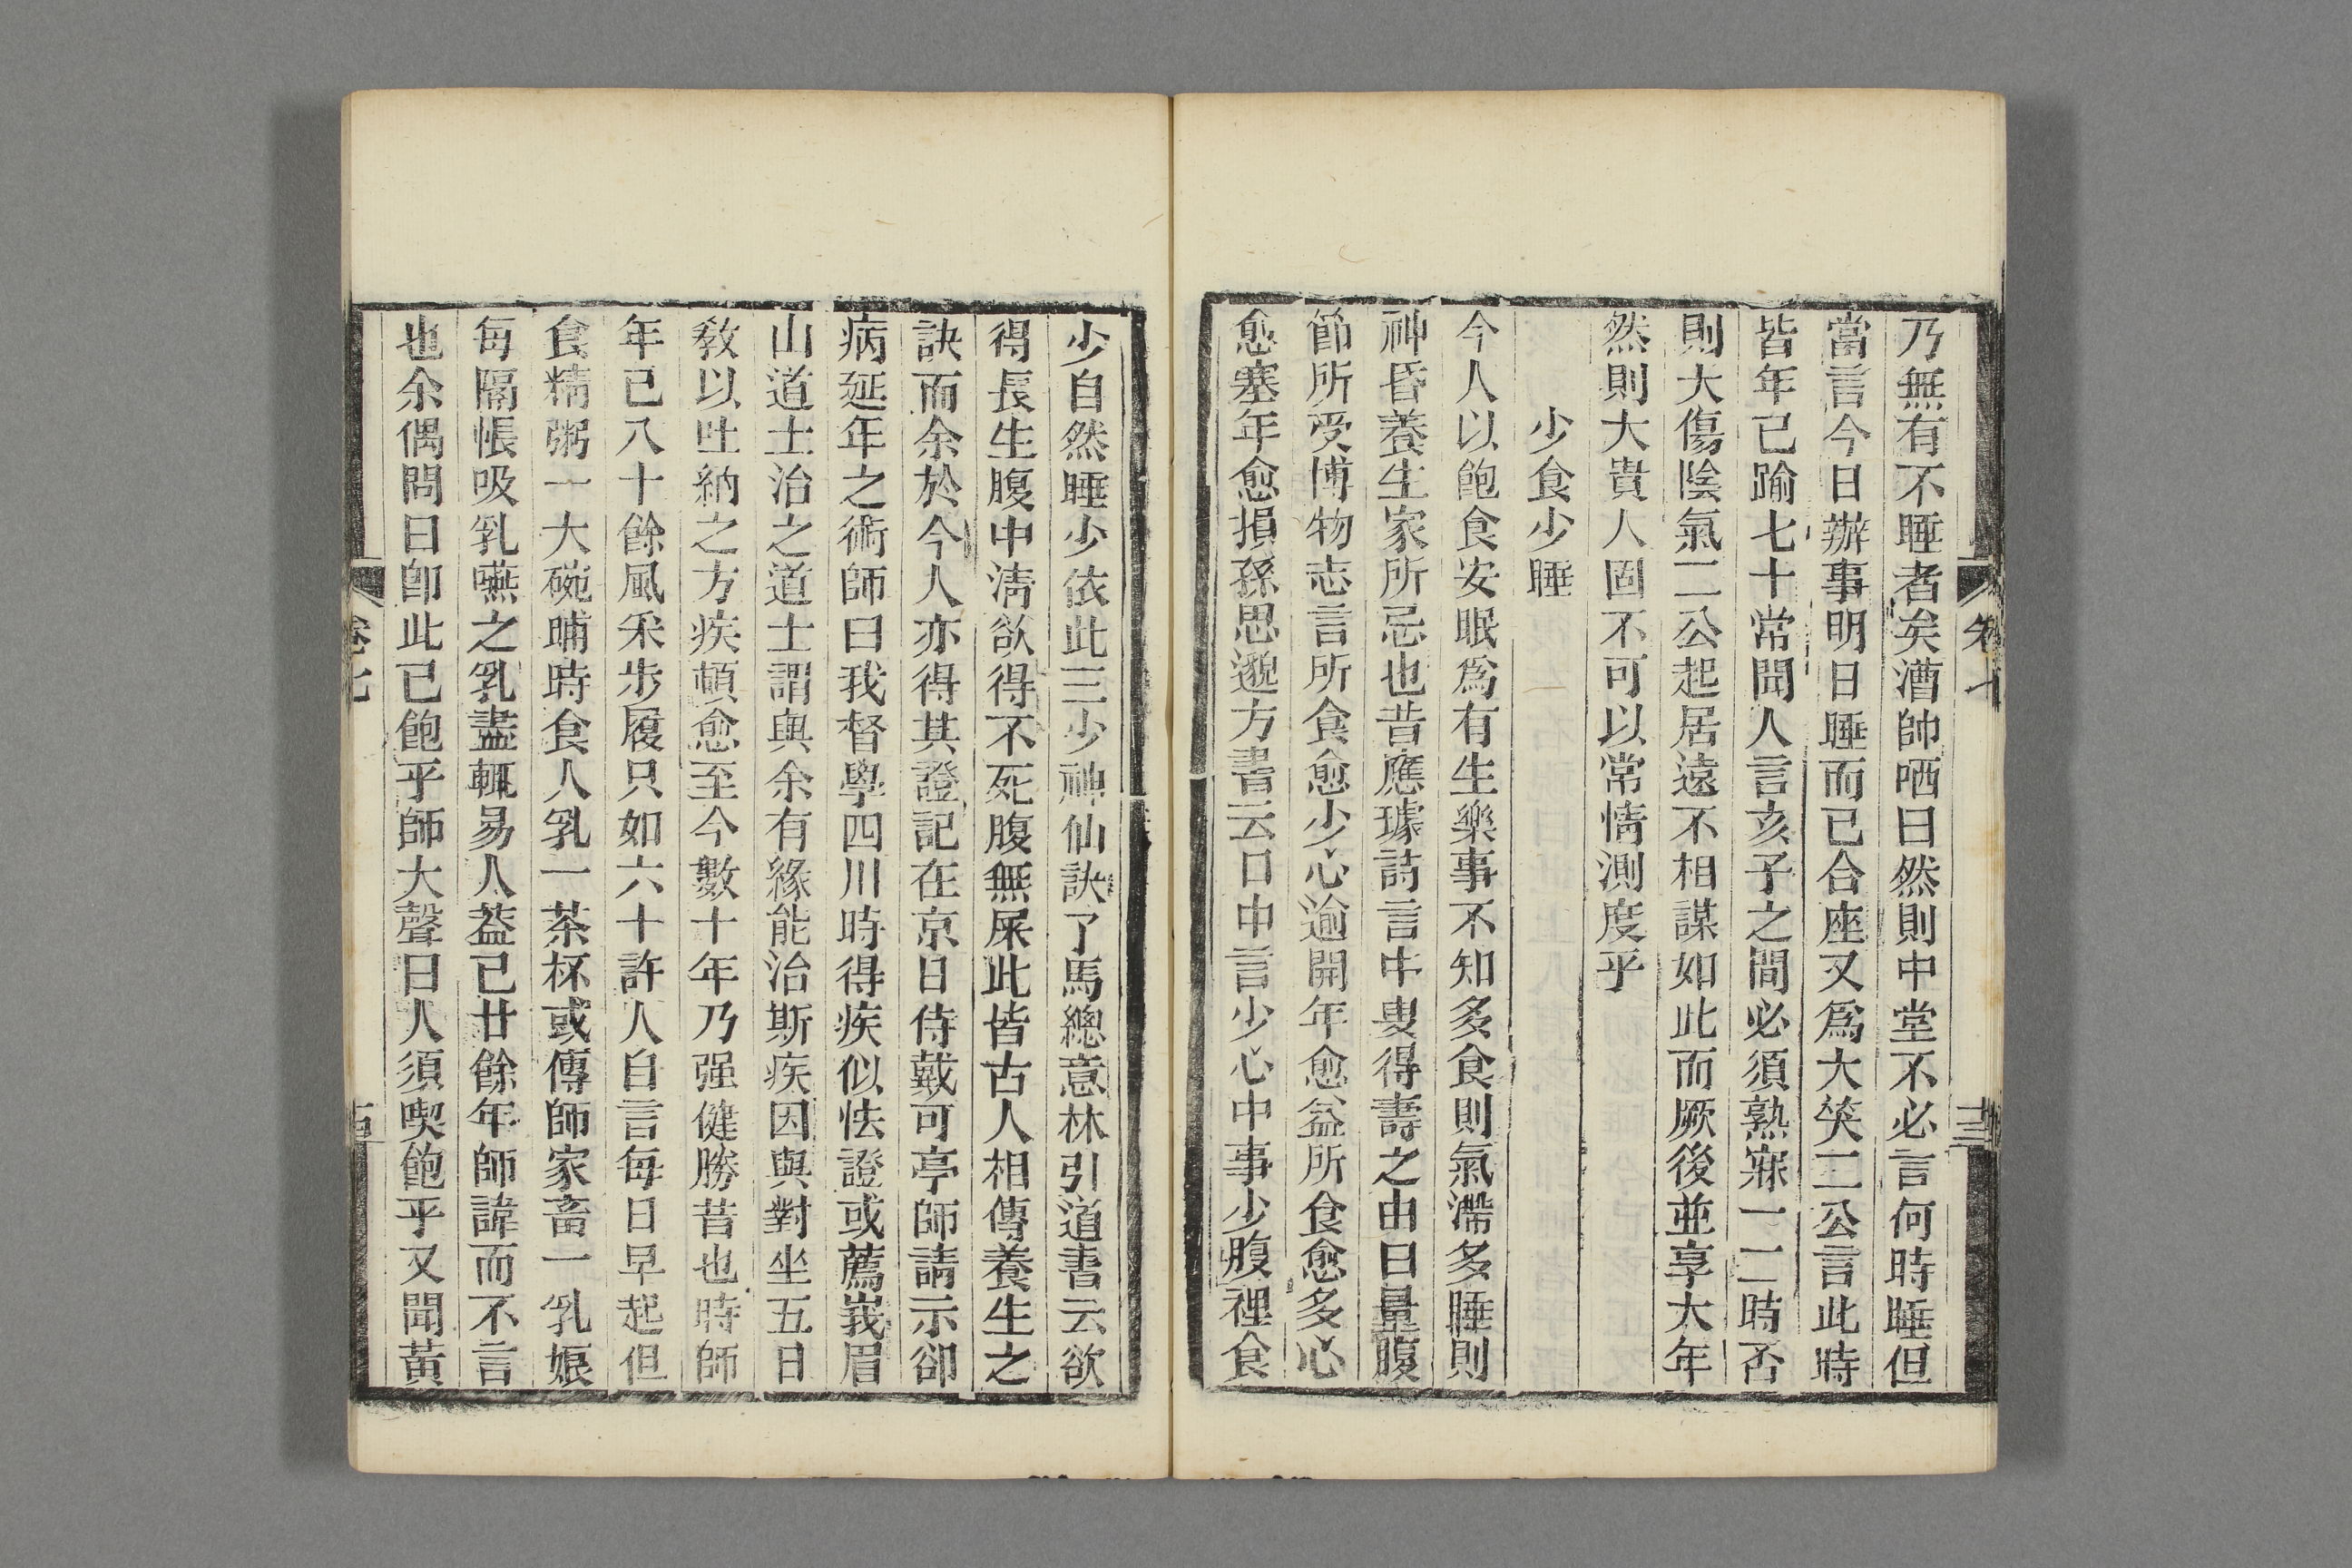 乃無有不睡者矣漕帥哂曰然則中堂不必言何時睡但
當言今日辦事明日睡而已合座又爲大笑二公言此時
皆年已踰七十常聞人言亥子之間必須熟寐一二時否
則大傷陰氣二公起居遠不相謀如此而厥後並享大年
然則大貴人固不可以常情測度乎
少食少睡
今人以飽食安眠爲有生樂事不知多食則氣滯多睡則
神昏養生家所忌也昔應璩詩言中叟得壽之由曰量腹
節所受博物志言所食愈少心逾開年愈益所食愈多心
愈塞年愈損孫思邈方書云口中言少心中事少腹裡食
少自然睡少依此三少神仙訣了馬總意林引道書云欲
得長生腹中淸欲得不死腹無屎此皆古人相傳養生之
訣而余於今人亦得其證記在京日侍戴可亭師請示卻
病延年之術師曰我督學四川時得疾似怯證或薦峩眉
山道士治之道士謂與余有緣能治斯疾因與對坐五日
敎以吐納之方疾頓愈至今數十年乃强健勝昔也時師
年已八十餘風采步履只如六十許人自言每日早起但
食精粥一大碗晡時食人乳一茶杯或傳師家畜一乳娘
每隔帳吸乳嚥之乳盡輒易人葢已廿餘年師諱而不言
也余偶問曰卽此已飽乎師大聲曰人須喫飽乎又聞黃
卷七